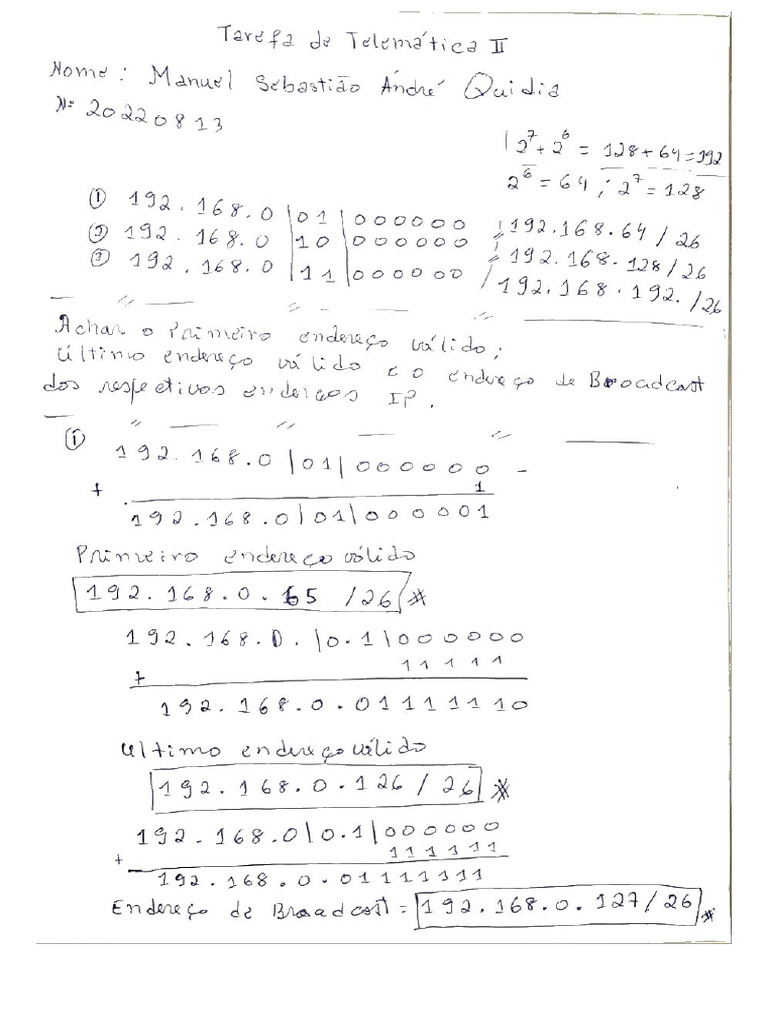 Tarefa de Telemática II
Nome: Manuel Sebastião André Quidia
Nº 20220813
2^7 + 2^6 = 128 + 64 = 192
2^6 = 64 ; 2^7 = 128
① 192.168.0 |01|000000 / 192.168.64 / 26
② 192.168.0 |10|000000 / 192.168.128 / 26
③ 192.168.0 |11|000000 / 192.168.192. / 26
Achar o Primeiro endereço válido;
Último endereço válido e o endereço de Broadcast
dos respetivos enderços IP.
① 192.168.0 |01|000000
+ 1
192.168.0|01|000001
Primeiro endereço válido
192.168.0.65 /26
192.168.0. |0.1|000000
+ 11111
192.168.0.01111110
Ultimo endereço válido
192.168.0.126 / 26
192.168.0|0.1|000000
+ 111111
192.168.0.01111111
Endereço de Broadcast = 192.168.0.127/26